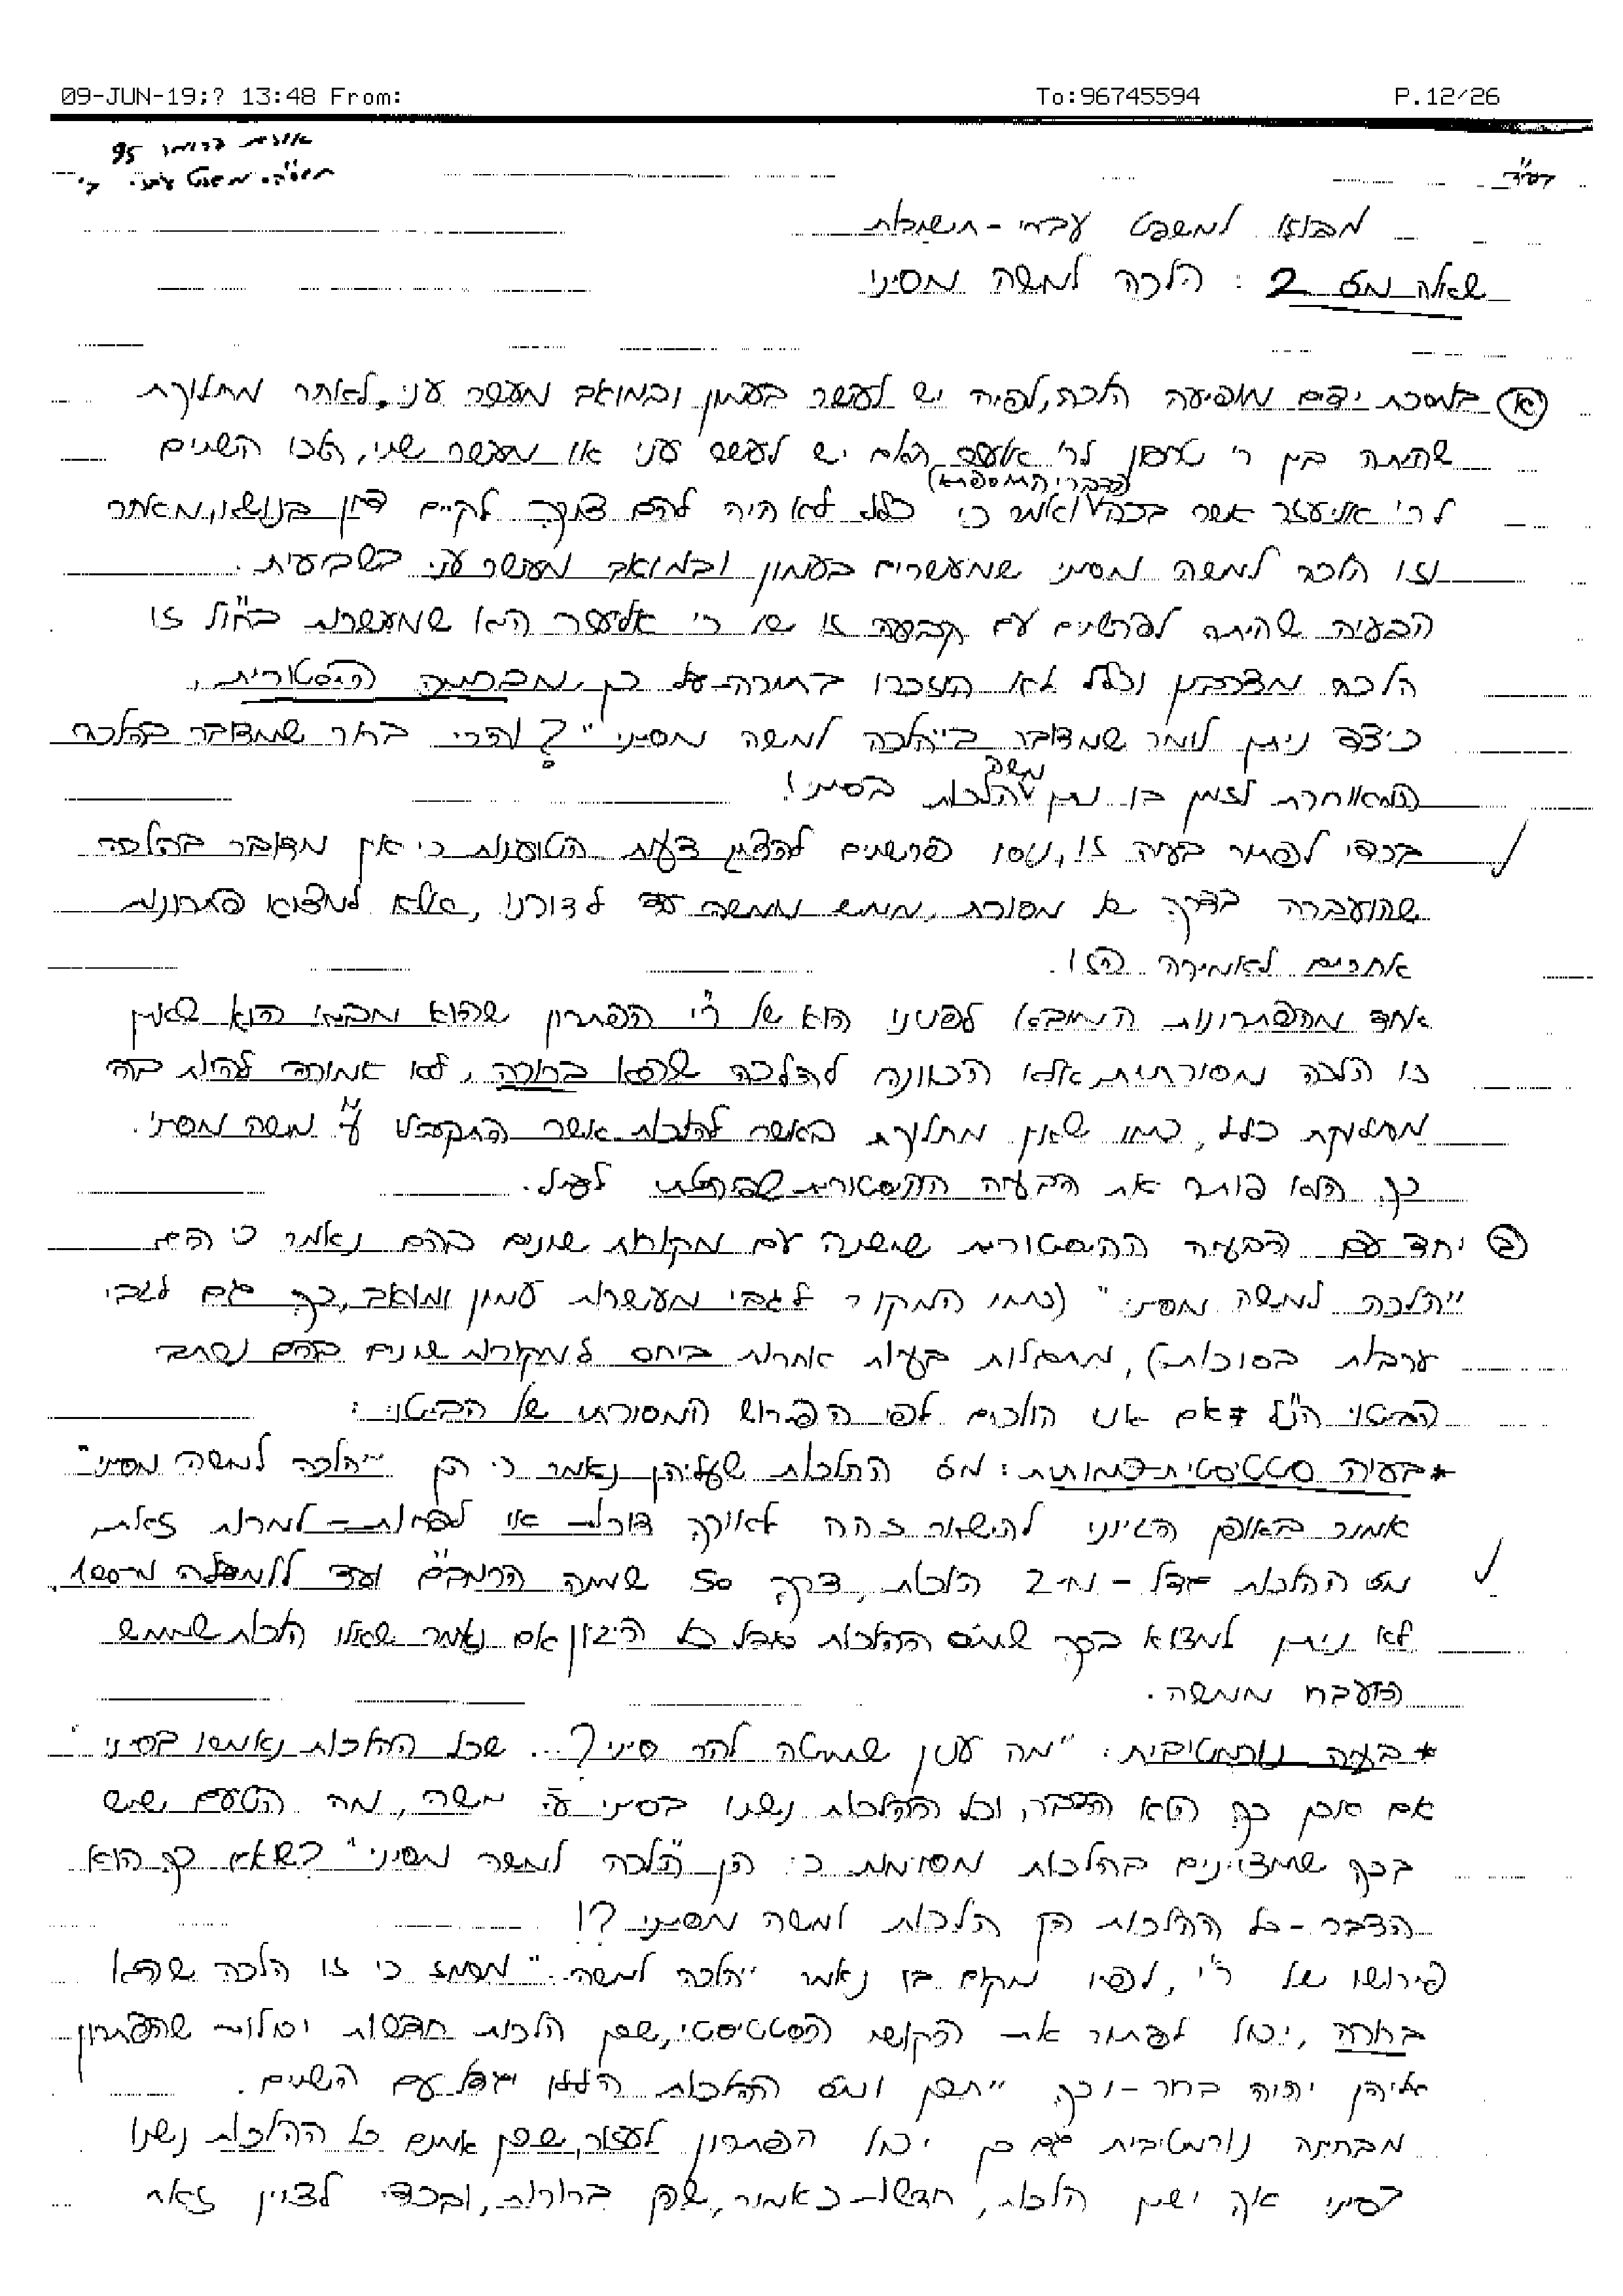 09-JUN-19;? 13:48 From: To:96745594 P.12/26
בס"ד
מבוא למשפט עברי - תשובות
שאלה מס 2 : הלכה למשה מסיני
א במסכת ידים מופיעה הלכה, לפיה יש לעשר בעמון ובמואב מעשר עני. לאחר מחלוקת
שהיתה בין ר' טרפון לר' האם יש לעשר עני או מעשר שני, הלכו השנים
(כדברי התוספתא)
לר' אליעזר אשר בכה ואמר כי כלל לא היה להם צורך לקיים דיון בנושא, מאחר
וזו הלכה למשה מסיני שמעשרים בעמון ובמואב מעשר עני בשביעית.
הבעיה שהיתה לפרשנים עם קביעה זו של ר' אליעזר היא שמעשרות בחו"ל זו
הלכה מדרבנן וכלל לא הוזכרו בתורה על כן מבחינה היסטורית,
כיצד ניתן לומר שמדובר ב"הלכה למשה מסיני"? והרי ברור שמדובר בהלכה
משה
המאוחרת לזמן בו נתן הלכות בסיני!
בכדי לפתור בעיה זו, ניסו פרשנים דעות הטוענות כי אין מדובר בהלכה
שהועברה בדרך של מסורת, ממש ממשה עד לדורנו, אלא למצוא פתרונות
אחרים לאמירה הזו.
אחד מהפתרונות המובא לפנינו הוא של ר"י הפתרון שהוא מביא הוא שאין
זו הלכה מסורתית אלא הכוונה להלכה שהיא ברורה, לא אמורה להיות בה
מחלוקת כלל, כמו שאין מחלוקת באשר להלכות אשר התקבלו ע"י משה מסיני.
כך הוא פותר את הבעיה ההיסטורית שהעלתי לעיל.
ב יחד עם הבעיה ההיסטורית שישנה עם מקורות שונים בהם נאמר כי הם
"הלכה למשה מסיני" (כמו המקור לגבי מעשרות עמון ומואב, כך גם לגבי
ערבות בסוכות), מתגלות בעיות אחרות ביחס למקורות שונים בהם נכתב
הביטוי הנ"ל אם אנו הולכים לפי הפירוש המסורתי של הביטוי:
*בעיה סטטיסטית-כמותית: מס ההלכות שעליהן נאמר כי הן "הלכה למשה מסיני"
אמור באופן הגיוני להישאר זהה לאורך הדורות - או לפחות - למרות זאת
מס ההלכות גדל - מ-2 הלכות, דרך 50 שמנה הרמב"ם ועד ללמעלה מ-100.
לא ניתן למצוא בכך שמס ההלכות גדל כל הגיון אם נאמר שאלו הלכות שממש
הועברו ממשה.
*בעיה נורמטיבית: "מה ענין שמיטה להר סיני?... שכל ההלכות נאמרו בסיני"
אם אכן כך הוא הדבר, וכל ההלכות ניתנו בסיני ע"י משה, מה הטעם שיש
בכך שמציינים בהלכות מסוימות כי הן "הלכה למשה מסיני"? שאם כך הוא
הדבר - כל ההלכות הן הלכות למשה מסיני?!
פירושו של ר"י, לפיו מקום בו נאמר "הלכה למשה.." מרמז כי זו הלכה שהיא
ברורה, יכול לפתור את הקושי הסטטיסטי, שכן הלכות חדשות יכולות שהפתרון
אליהן יהיה ברור - וכך יתכן ומס ההלכות הללו יגדל עם השנים.
מבחינה נורמטיבית גם כן יכול הפתרון לעזור, שכן אמנם כל ההלכות ניתנו
בסיני אך ישנן הלכות, חדשות כאמור, שהן ברורות, ובכדי לציין זאת